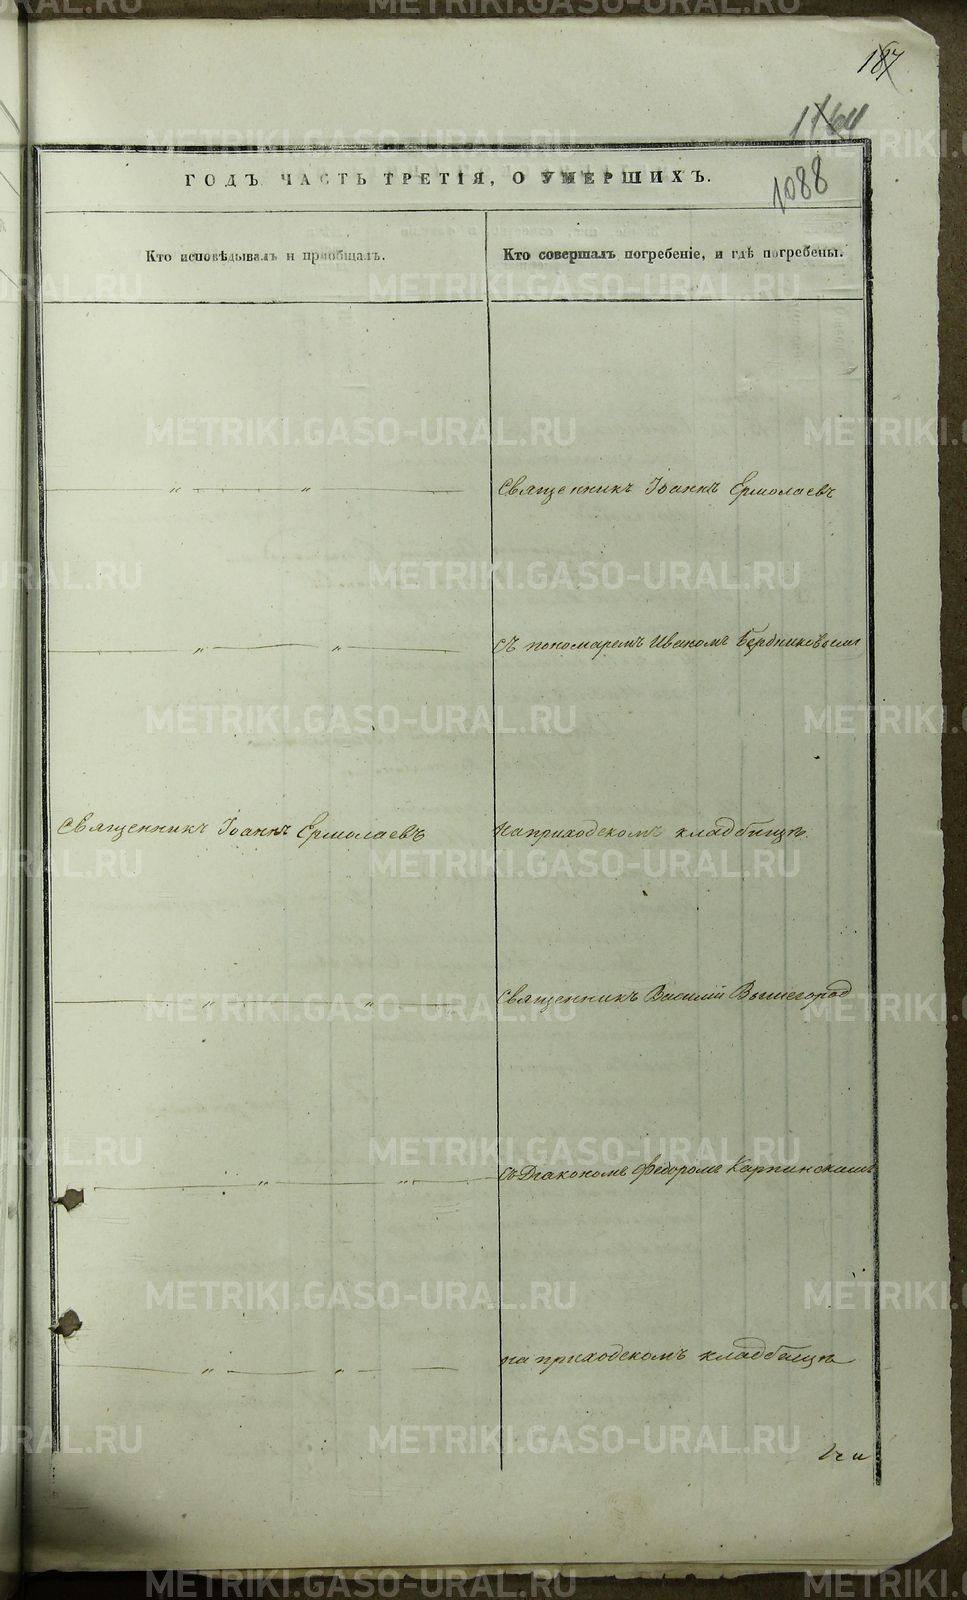 187
1164
1088
ГОДЪ ЧАСТЬ ТРЕТІЯ, О УМЕРШИХЪ.
Кто исповѣдывалъ и пріобщалъ.
Кто совершалъ погребеніе, и гдѣ погребены.
Священникъ Іоаннъ Ермолаевъ
съ пономаремъ Иваномъ Бердниковымъ
Священникъ Іоаннъ Ермолаевъ
на приходскомъ кладбищѣ.
Священникъ Василій Вышегород
съ Діакономъ Федоромъ Карпинскимъ
на приходскомъ кладбищѣ
METRIKI.GASO-URAL.RU